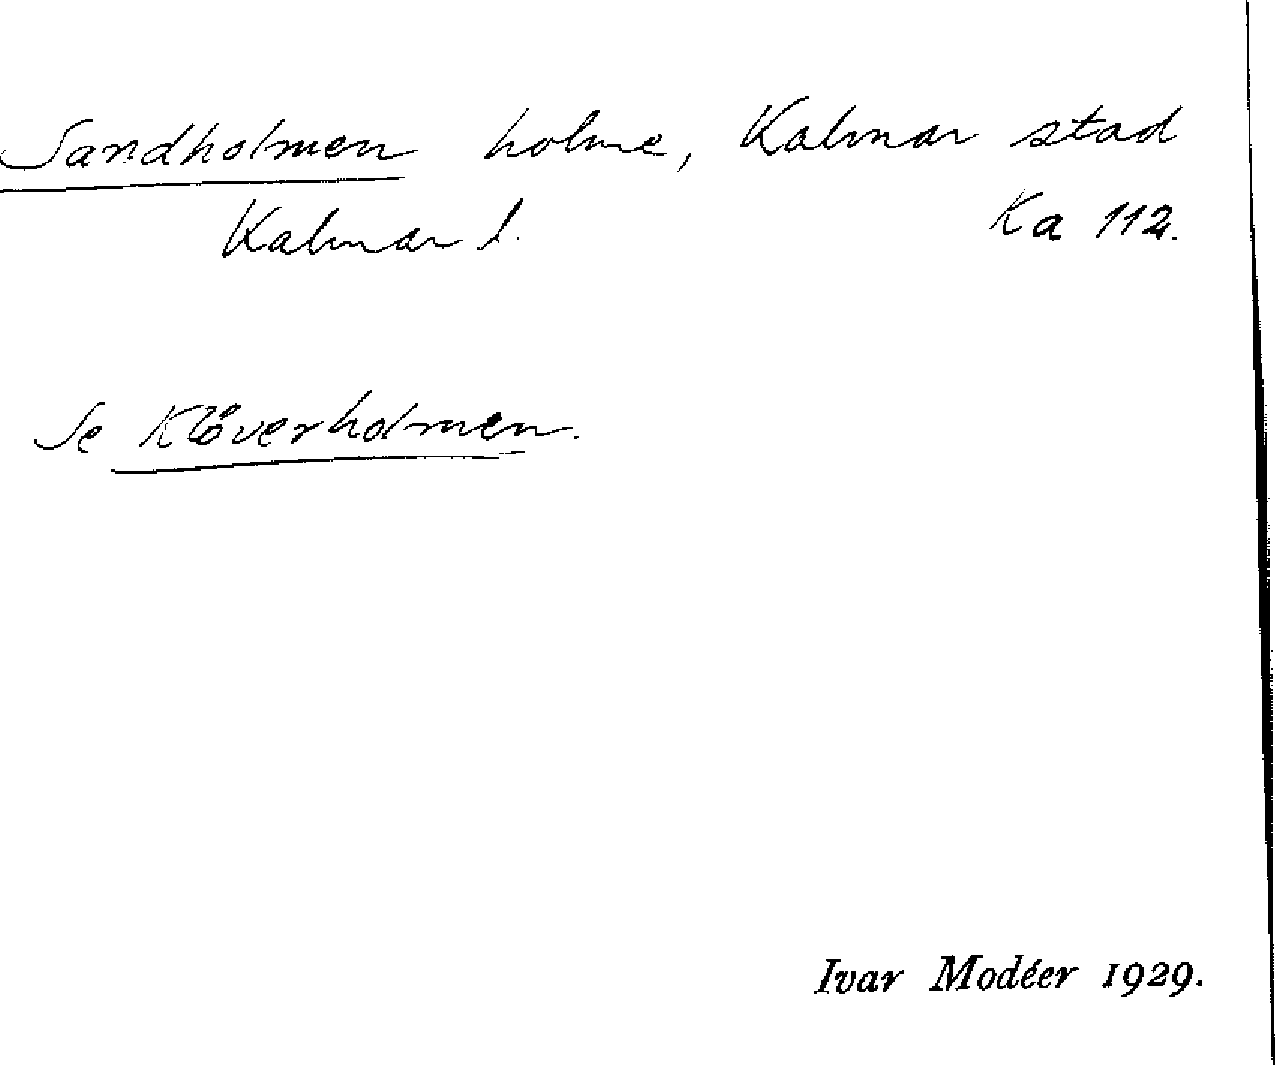 Sandholmen holme, Kalmar stad
Kalmar l. Ka 112.
Se Klöverholmen.
Ivar Modéer 1929.